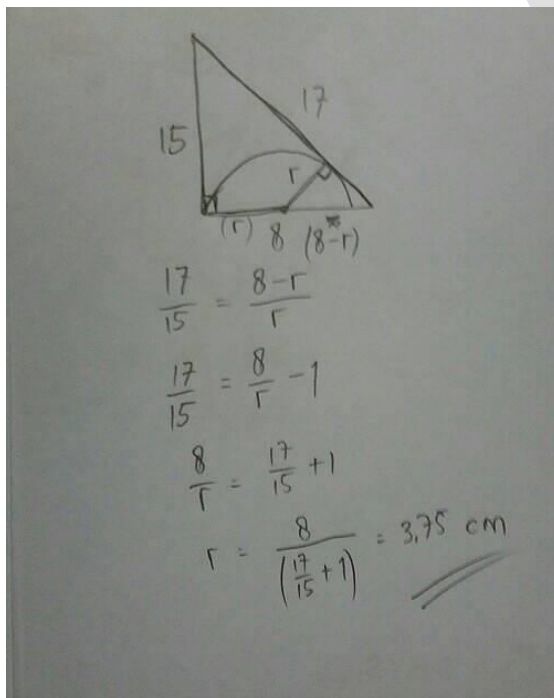 17
15
r
(r) 8 (8-r)
17/15 = (8-r)/r
17/15 = 8/r - 1
8/r = 17/15 + 1
r = 8/(17/15 + 1) = 3,75 cm